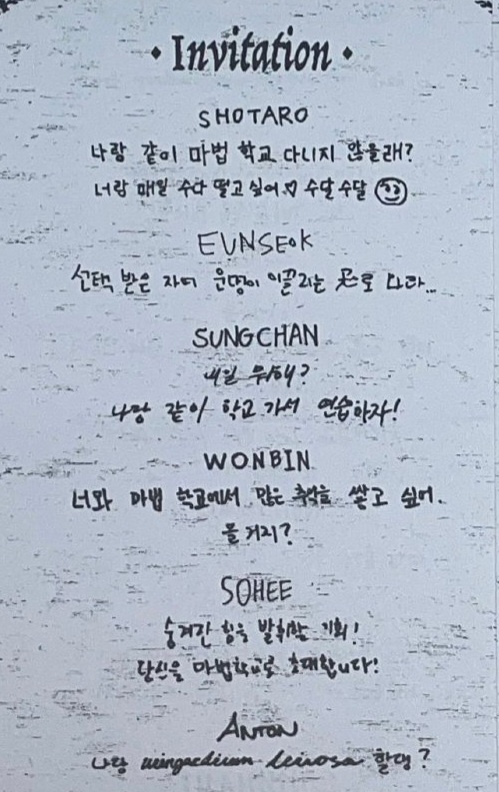 Invitation
SHOTARO
나랑 같이 마법 학교 다니지 않을래?
너랑 매일 수다 떨고 싶어♡ 수달수달
EUNSEOK
선택 받은 자여 운명이 이끌리는 곳으로 나와...
SUNGCHAN
내일 뭐해?
나랑 같이 학교 가서 연습하자!
WONBIN
너와 마법 학교에서 많은 추억을 쌓고 싶어.
올거지?
SOHEE
숨겨진 힘을 발휘할 기회!
당신을 마법학교로 초대합니다!
ANTON
나랑 wingardium leviosa 할댕?